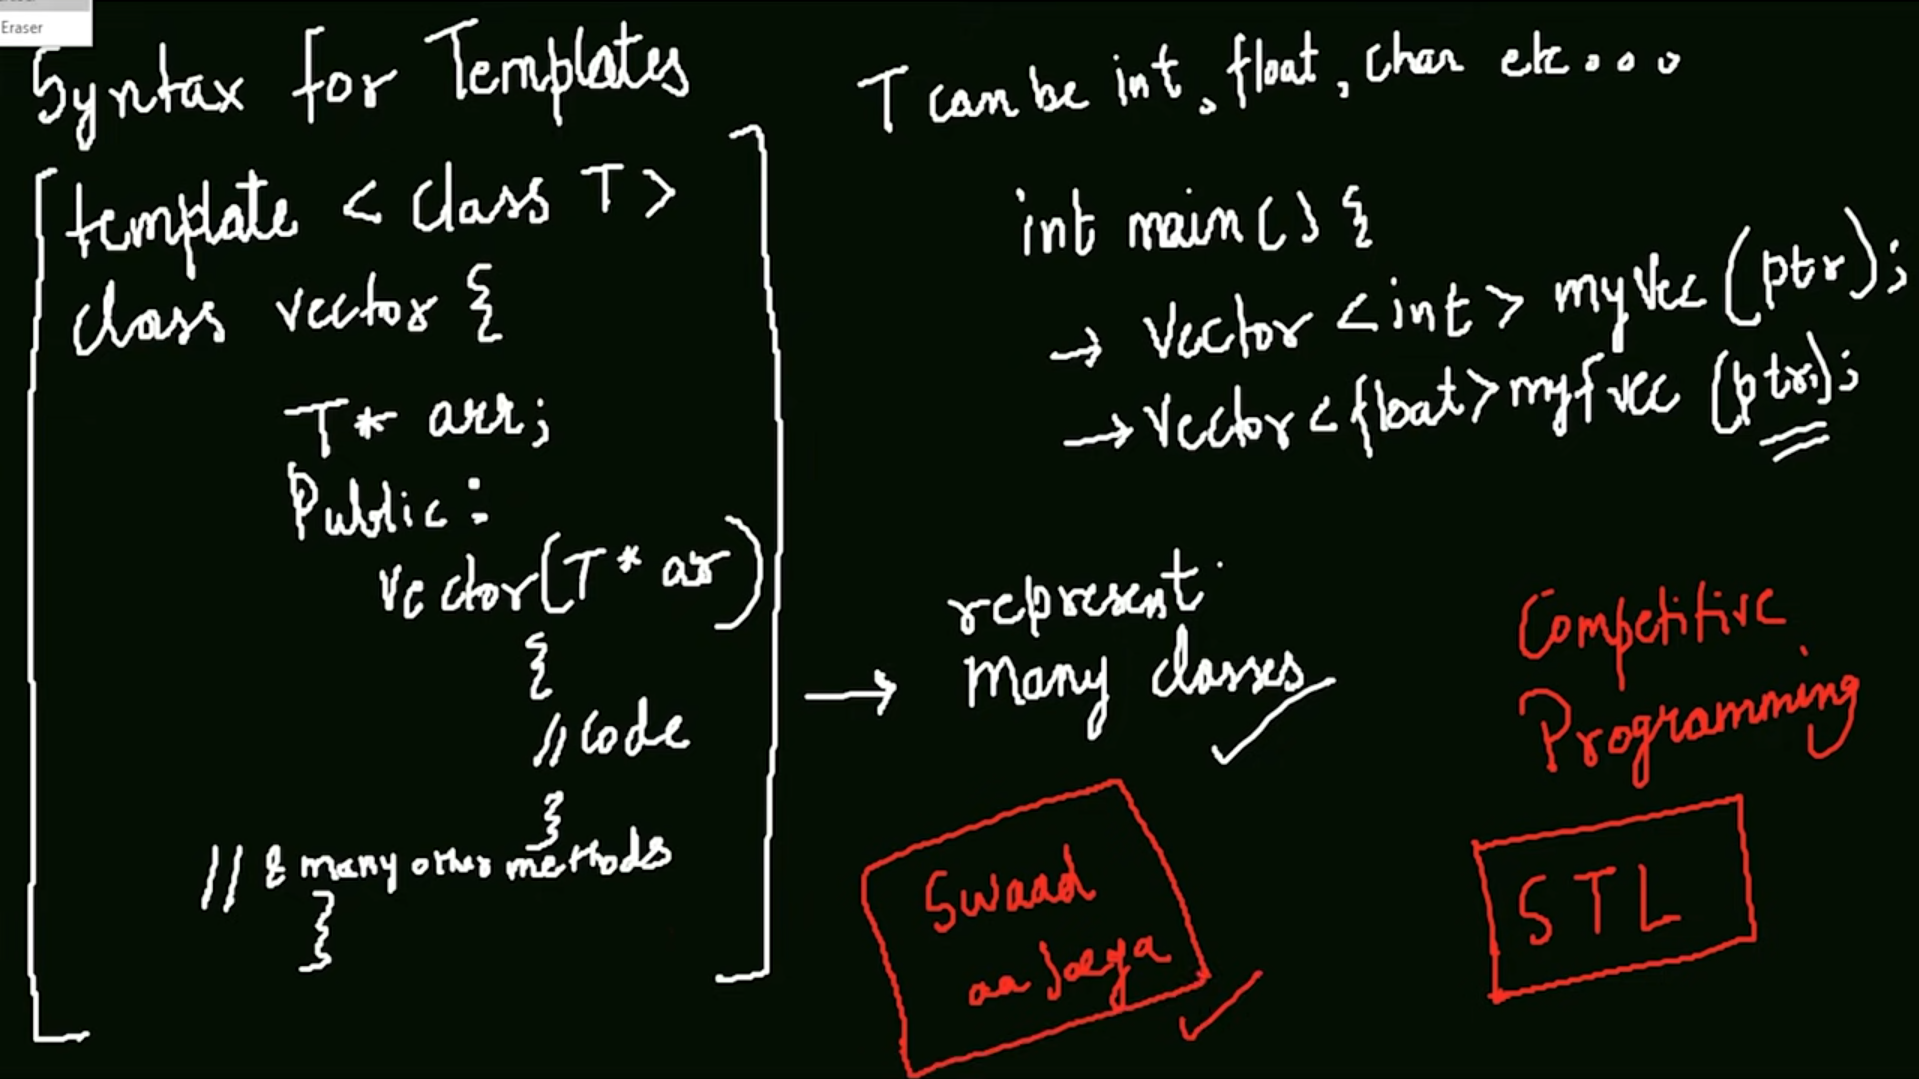 Eraser
Syntax for Templates
template < class T >
class vector {
T* arr;
Public :
vector(T* ar)
{
// code
}
// & many other methods
}
T can be int, float, char etc...
int main() {
→ vector <int> myvec (ptr);
→ vector <float> myfvec (ptr);
→ represent
many classes
Swaad
aa Jaega
Competitive
Programming
STL